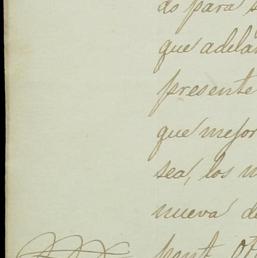 do para s
que adelan
presente
que mejor
sea, los m
nueva de